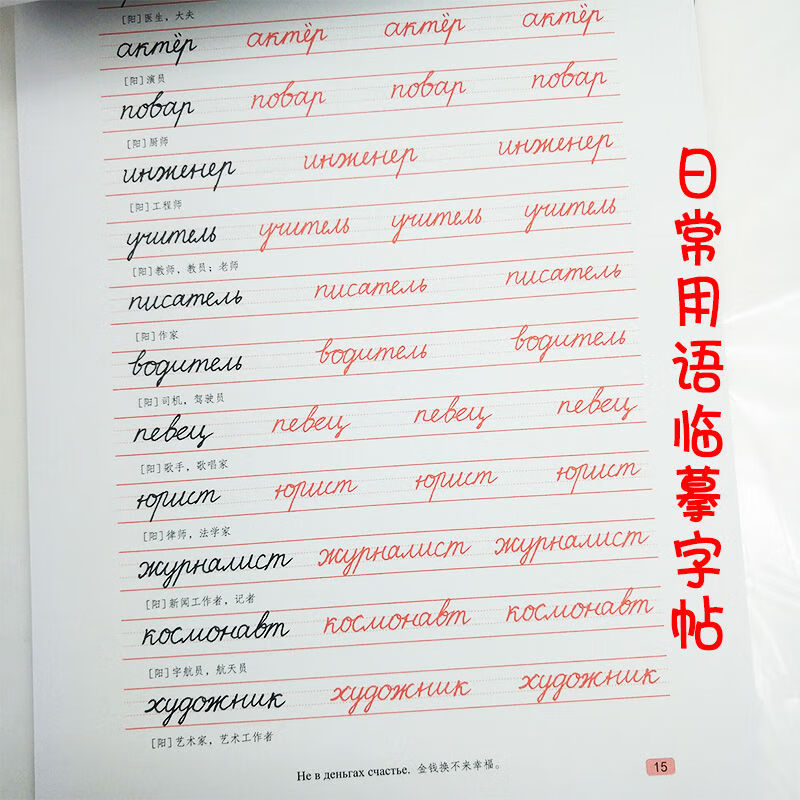 [阳]医生，大夫
актёр актёр актёр актёр
[阳]演员
повар повар повар повар
[阳]厨师
инженер инженер инженер
[阳]工程师
учитель учитель учитель учитель
[阳]教师，教员；老师
писатель писатель писатель
[阳]作家
водитель водитель водитель
[阳]司机，驾驶员
певец певец певец певец
[阳]歌手，歌唱家
юрист юрист юрист юрист
[阳]律师，法学家
журналист журналист журналист
[阳]新闻工作者，记者
космонавт космонавт космонавт
[阳]宇航员，航天员
художник художник художник
[阳]艺术家，艺术工作者
Не в деньгах счастье. 金钱换不来幸福。
15
日常用语临摹字帖